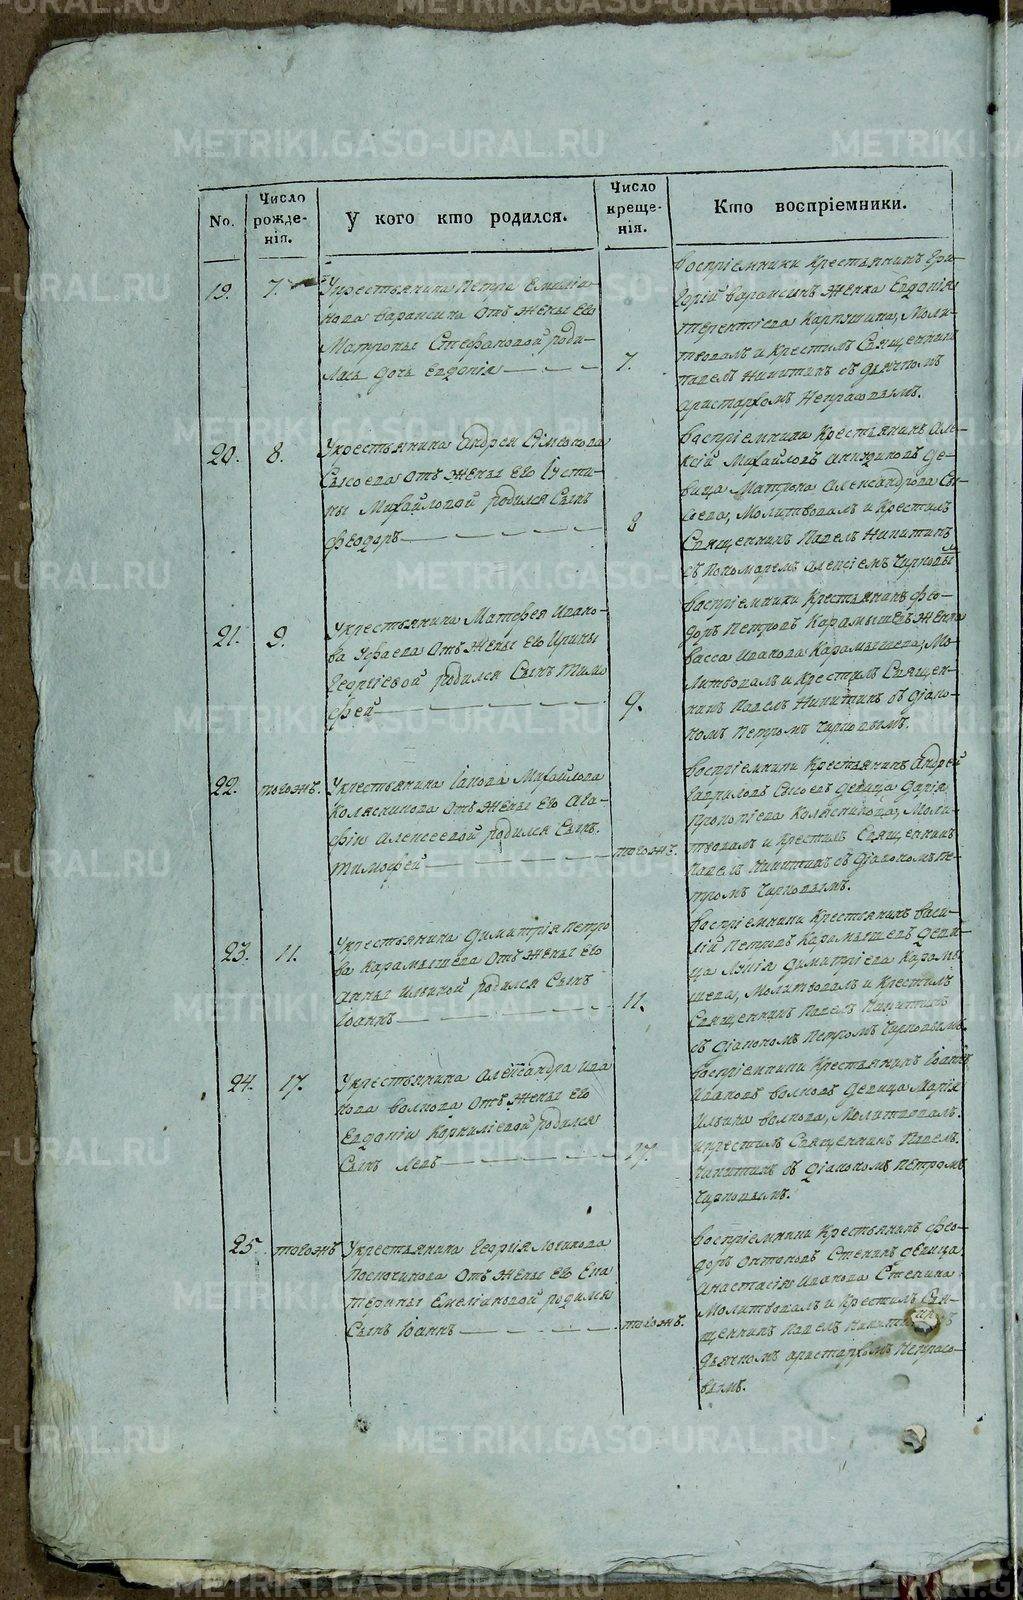 No.
Число рожденія.
У кого кто родился.
Число крещенія.
Кто воспріемники.
19.
7.
Укрестьянина Петра Емилiа-
нова Отъ жены Его
Матроны Стефановой роди-
лась дочь Евдокія
7.
Воспріемники Крестьянинъ Гри-
горій женка Евдокія
Терентіева Молит-
твовалъ и Крестилъ Священникъ
Павелъ Никитинъ съ дьячкомъ
Аристархомъ
20.
8.
Укрестьянина Андрея Сімеонова
Сысоева Отъ жены Его Іусти-
ны Михайловой родился Сынъ
Феодоръ
8
Воспріемники Крестьянинъ Але-
ксій Михайловъ де-
вица Матрона Александрова Сы-
соева, Молитвовалъ и Крестилъ
Священникъ Павелъ Никитинъ
съ Пономаремъ Алексіемъ
21.
9.
Укрестьянина Матфея Ивано-
ва Отъ жены Его Ирины
Георгіевой родился Сынъ Тимо
фей
9.
Воспріемники Крестьянинъ Фео-
доръ Петровъ Карамышевъ женка
Васса Иванова Карамышева, Мо-
литвовалъ и Крестилъ Священ-
никъ Павелъ Никитинъ съ діако-
номъ Петромъ
22.
тогожъ.
Укрестьянина Іакова Михайлова
Колясникова Отъ жены Его Ага-
фіи Алексеевой родился Сынъ
Тимофей
тогожъ.
Воспріемники Крестьянинъ Андрей
Гавриловъ Сысоевъ девица Дарія
Прокопіева Колясникова, Моли-
твовалъ и Крестилъ Священникъ
Павелъ Никитинъ съ діакономъ Пе-
тромъ
23.
11.
Укрестьянина Димитрія Петро
ва Карамышева Отъ жены Его
Анны Ильиной родился Сынъ
Іоаннъ
11.
Воспріемники Крестьянинъ Васи-
лій Петровъ Карамышевъ деви-
ца Димитріева Карамы
шева, Молитвовалъ и Крестилъ
Священникъ Павелъ Никитинъ
съ діакономъ Петромъ
24.
17.
Укрестьянина Александра Ива
нова Волкова Отъ жены Его
Евдокіи Корниліевой родился
Сынъ Левъ
17.
Воспріемники Крестьянинъ Іоаннъ
Ивановъ Волковъ девица Марія
Ильина Волкова, Молитвовалъ
и Крестилъ Священникъ Павелъ
Никитинъ съ діакономъ Петромъ
25.
тогожъ
Укрестьянина Георгія Логинова
Отъ жены Его Ека
терины Емеліановой родился
Сынъ Іоаннъ
тогожъ.
Воспріемники Крестьянинъ Фео-
доръ Стенинъ девица
Анастасія Иванова Стенина
Молитвовалъ и Крестилъ Свя-
щенникъ Павелъ
дьячкомъ Аристархомъ
METRIKI.GASO-URAL.RU